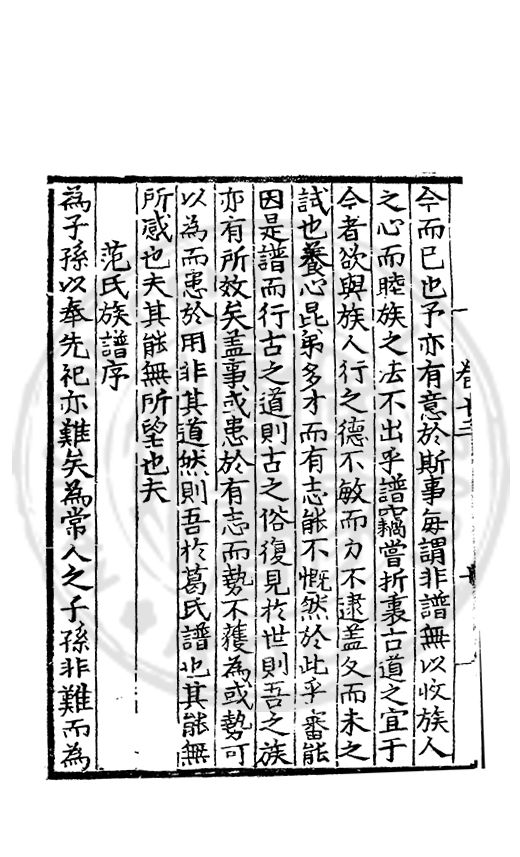 今而已也予亦有意於斯事每謂非譜無以收族人
之心而睦族之法不出乎譜竊嘗折衷古道之宜于
今者欲與族人行之德不敏而力不逮盖久而未之
試也養心昆弟多才而有志能不慨然於此乎審能
因是譜而行古之道則古之俗復見於世則吾之族
亦有所效矣盖事或患於有志而勢不獲為或勢可
以為而患於用非其道然則吾於葛氏譜也其能無
所感也夫其能無所望也夫
范氏族譜序
為子孫以奉先祀亦難矣為常人之子孫非難而為
卷十三